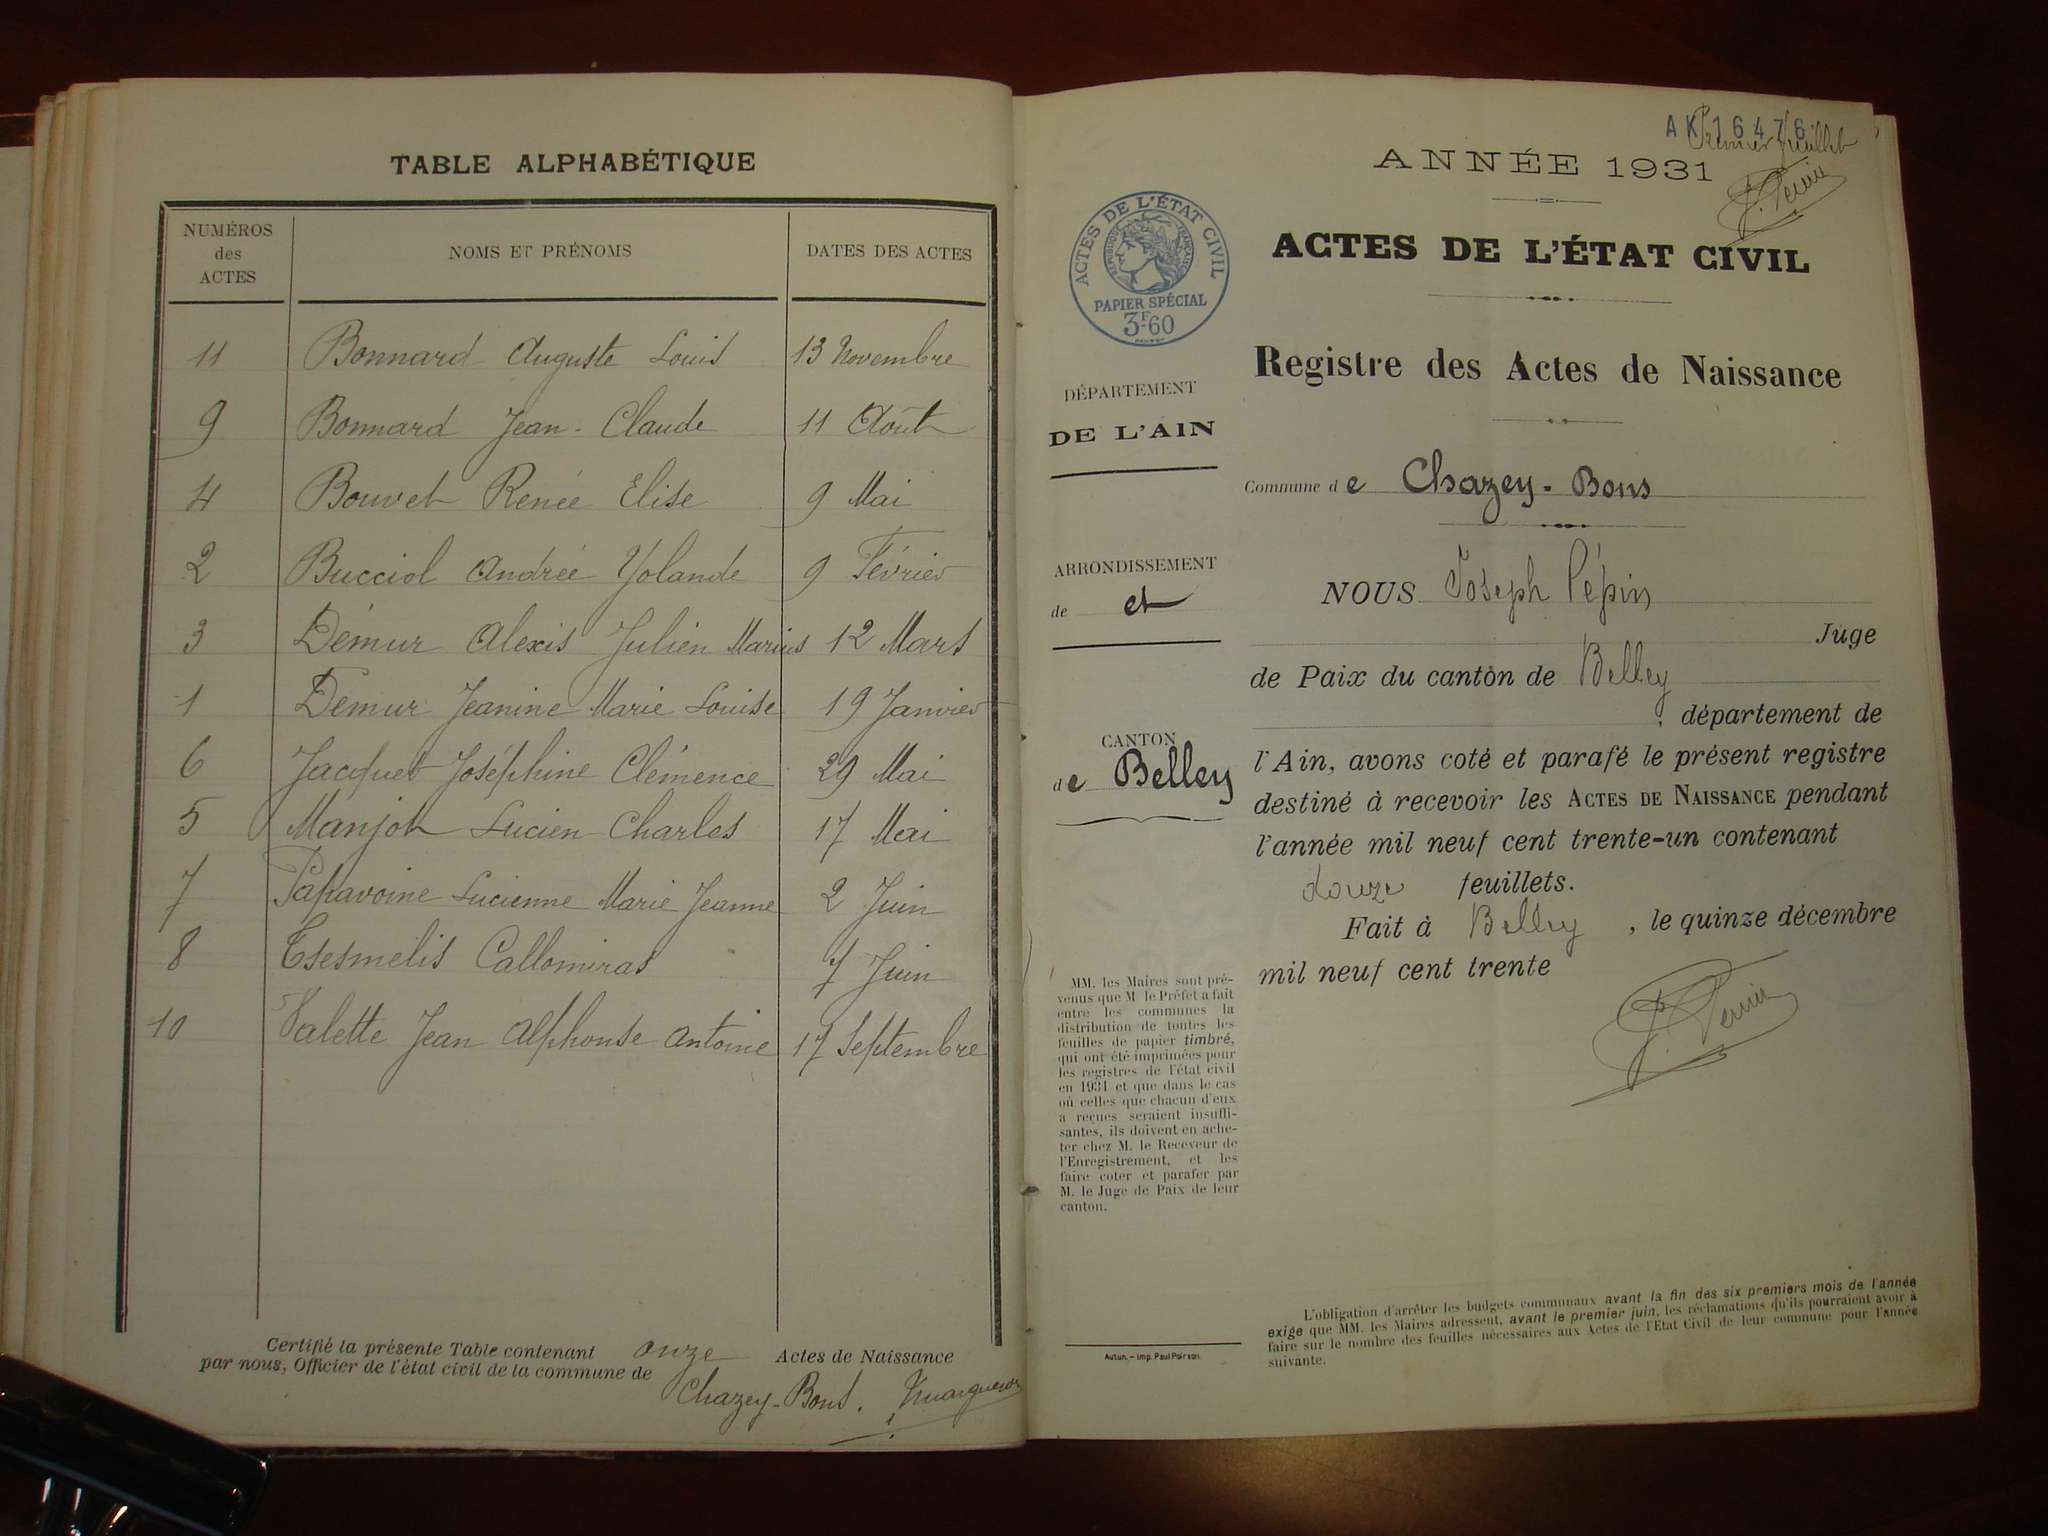 TABLE ALPHABÉTIQUE
NUMÉROS des ACTES
NOMS ET PRÉNOMS
DATES DES ACTES
11 Bonnard Auguste Louis 13 Novembre
9 Bonnard Jean-Claude 11 Août
4 Bouvet Renée Elise 9 Mai
2 Bucciol Andrée Yolande 9 Février
3 Démur Alexis Julien Marius 12 Mars
1 Démur Jeanine Marie Louise 19 Janvier
6 Jacquet Joséphine Clémence 29 Mai
5 Manjot Lucien Charles 17 Mai
7 Papavoine Lucienne Marie Jeanne 2 Juin
8 Esesmelis Callomiras 7 Juin
10 Valette Jean Alphonse Antoine 17 Septembre
Certifié la présente Table contenant onze Actes de Naissance
par nous, Officier de l'état civil de la commune de
Chazey-Bons.
AK16476
Premier feuillet
ANNÉE 1931
ACTES DE L'ÉTAT CIVIL
RÉPUBLIQUE FRANÇAISE
PAPIER SPÉCIAL
3F60
ACTES DE L'ÉTAT CIVIL
Registre des Actes de Naissance
DÉPARTEMENT
DE L'AIN
Commune de Chazey-Bons
ARRONDISSEMENT
de et
CANTON
de Belley
NOUS Joseph Pépin
Juge
de Paix du canton de Belley
, département de
l'Ain, avons coté et parafé le présent registre
destiné à recevoir les ACTES DE NAISSANCE pendant
l'année mil neuf cent trente-un contenant
douze feuillets.
Fait à Belley, le quinze décembre
mil neuf cent trente
MM. les Maires sont pré-
venus que M le Préfet a fait
entre les communes la
distribution de toutes les
feuilles de papier timbré,
qui ont été imprimées pour
les registres de l'état civil
en 1931 et que dans le cas
où celles que chacun d'eux
a reçues seraient insuffi-
santes, ils doivent en ache-
ter chez M. le Receveur de
l'Enregistrement, et les
faire coter et parafer par
M. le Juge de Paix de leur
canton.
Autun. – Imp. Paul Poirson.
L'obligation d'arrêter les budgets communaux avant la fin des six premiers mois de l'année
exige que MM. les Maires adressent, avant le premier juin, les réclamations qu'ils pourraient avoir à
faire sur le nombre des feuilles nécessaires aux Actes de l'Etat Civil de leur commune pour l'année
suivante.